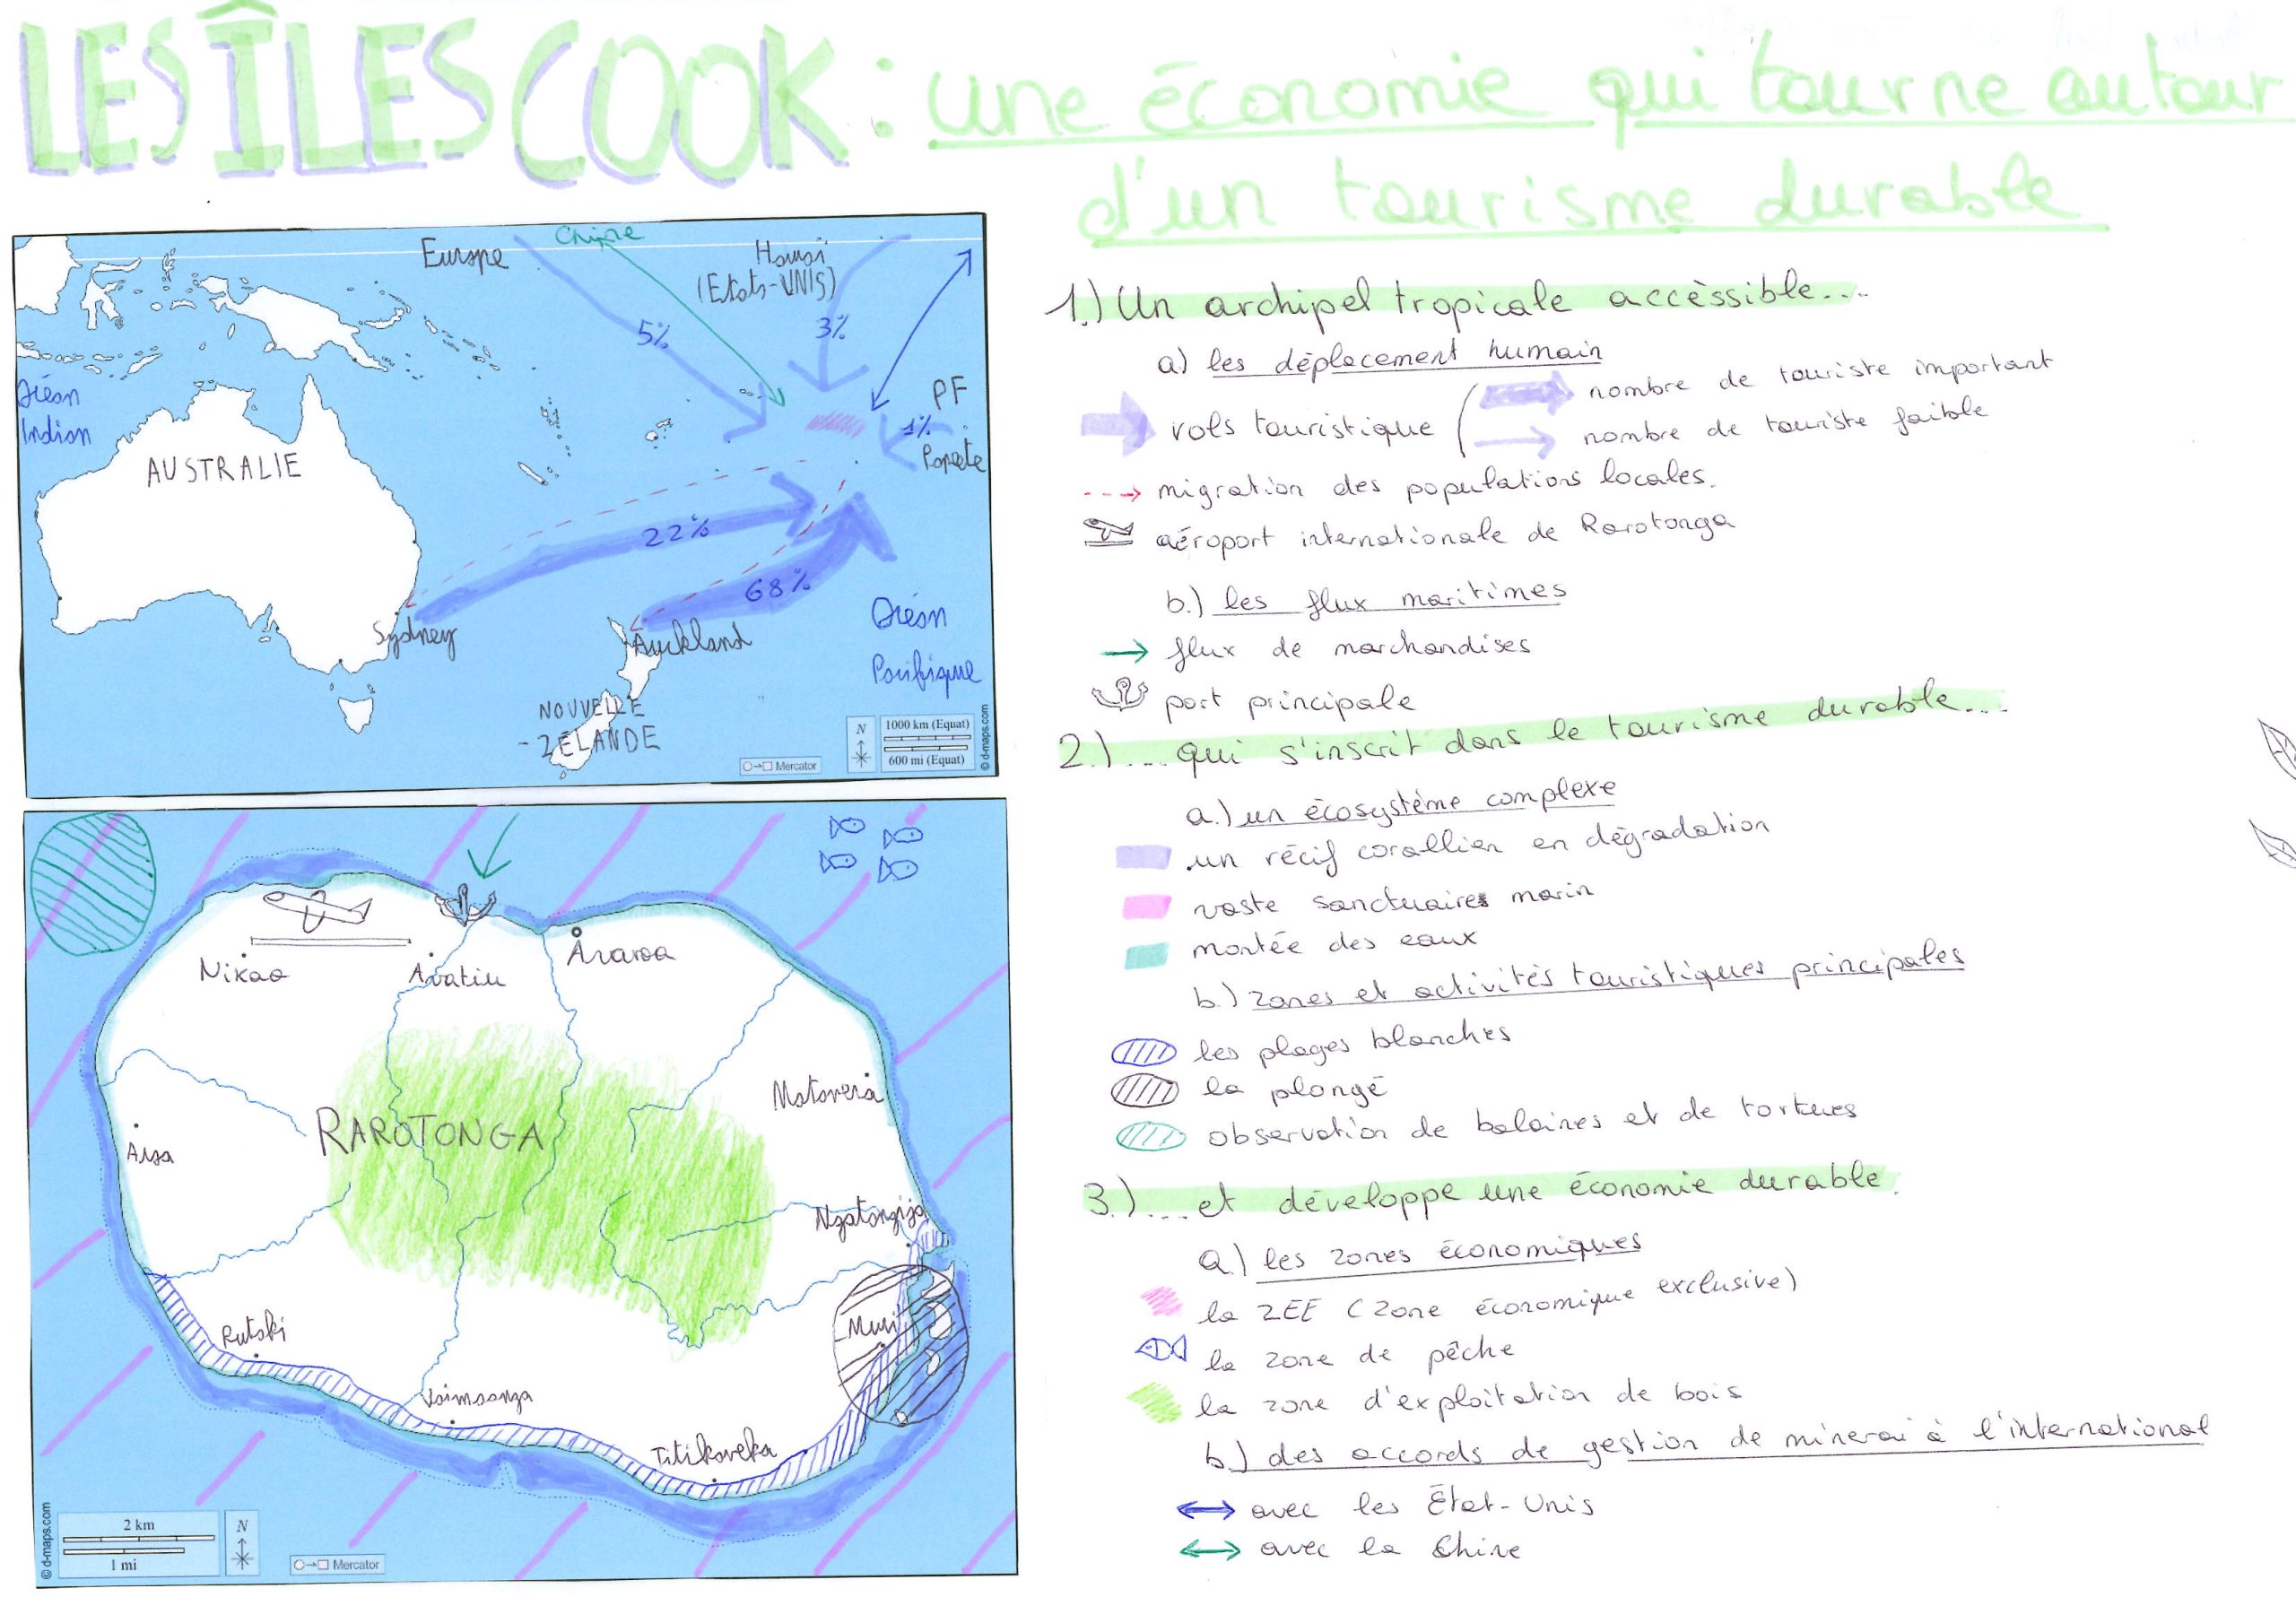 LES ÎLES COOK : une économie qui tourne autour
d'un tourisme durable
Europe
Chine
Hawaï
(Etats-UNIS)
5%
3%
PF
1%
Papeete
Océan
Indien
AUSTRALIE
22%
68%
Sydney
Auckland
Océan
Pacifique
NOUVELLE
-ZÉLANDE
N
1000 km (Equat)
600 mi (Equat)
Mercator
© d-maps.com
Nikao
Avatiu
Avarua
RAROTONGA
Matavera
Ngatangiia
Muri
Rutaki
Vaimaanga
Titikaveka
2 km
1 mi
N
Mercator
© d-maps.com
1.) Un archipel tropicale accèssible...
a) les déplacement humain
vols touristique
nombre de touriste important
nombre de touriste faible
migration des populations locales.
aéroport internationale de Rarotonga
b.) les flux maritimes
flux de marchandises
port principale
2.) ... qui s'inscrit dans le tourisme durable...
a.) un écosystème complexe
un récif corallien en dégradation
vaste sanctuaires marin
montée des eaux
b.) zones et activités touristiques principales
les plages blanches
la plongé
observation de baleines et de tortues
3.) ... et développe une économie durable.
a.) les zones économiques
la ZEE (Zone économique exclusive)
la zone de pêche
la zone d'exploitation de bois
b.) des accords de gestion de minerai à l'international
avec les État-Unis
avec la Chine